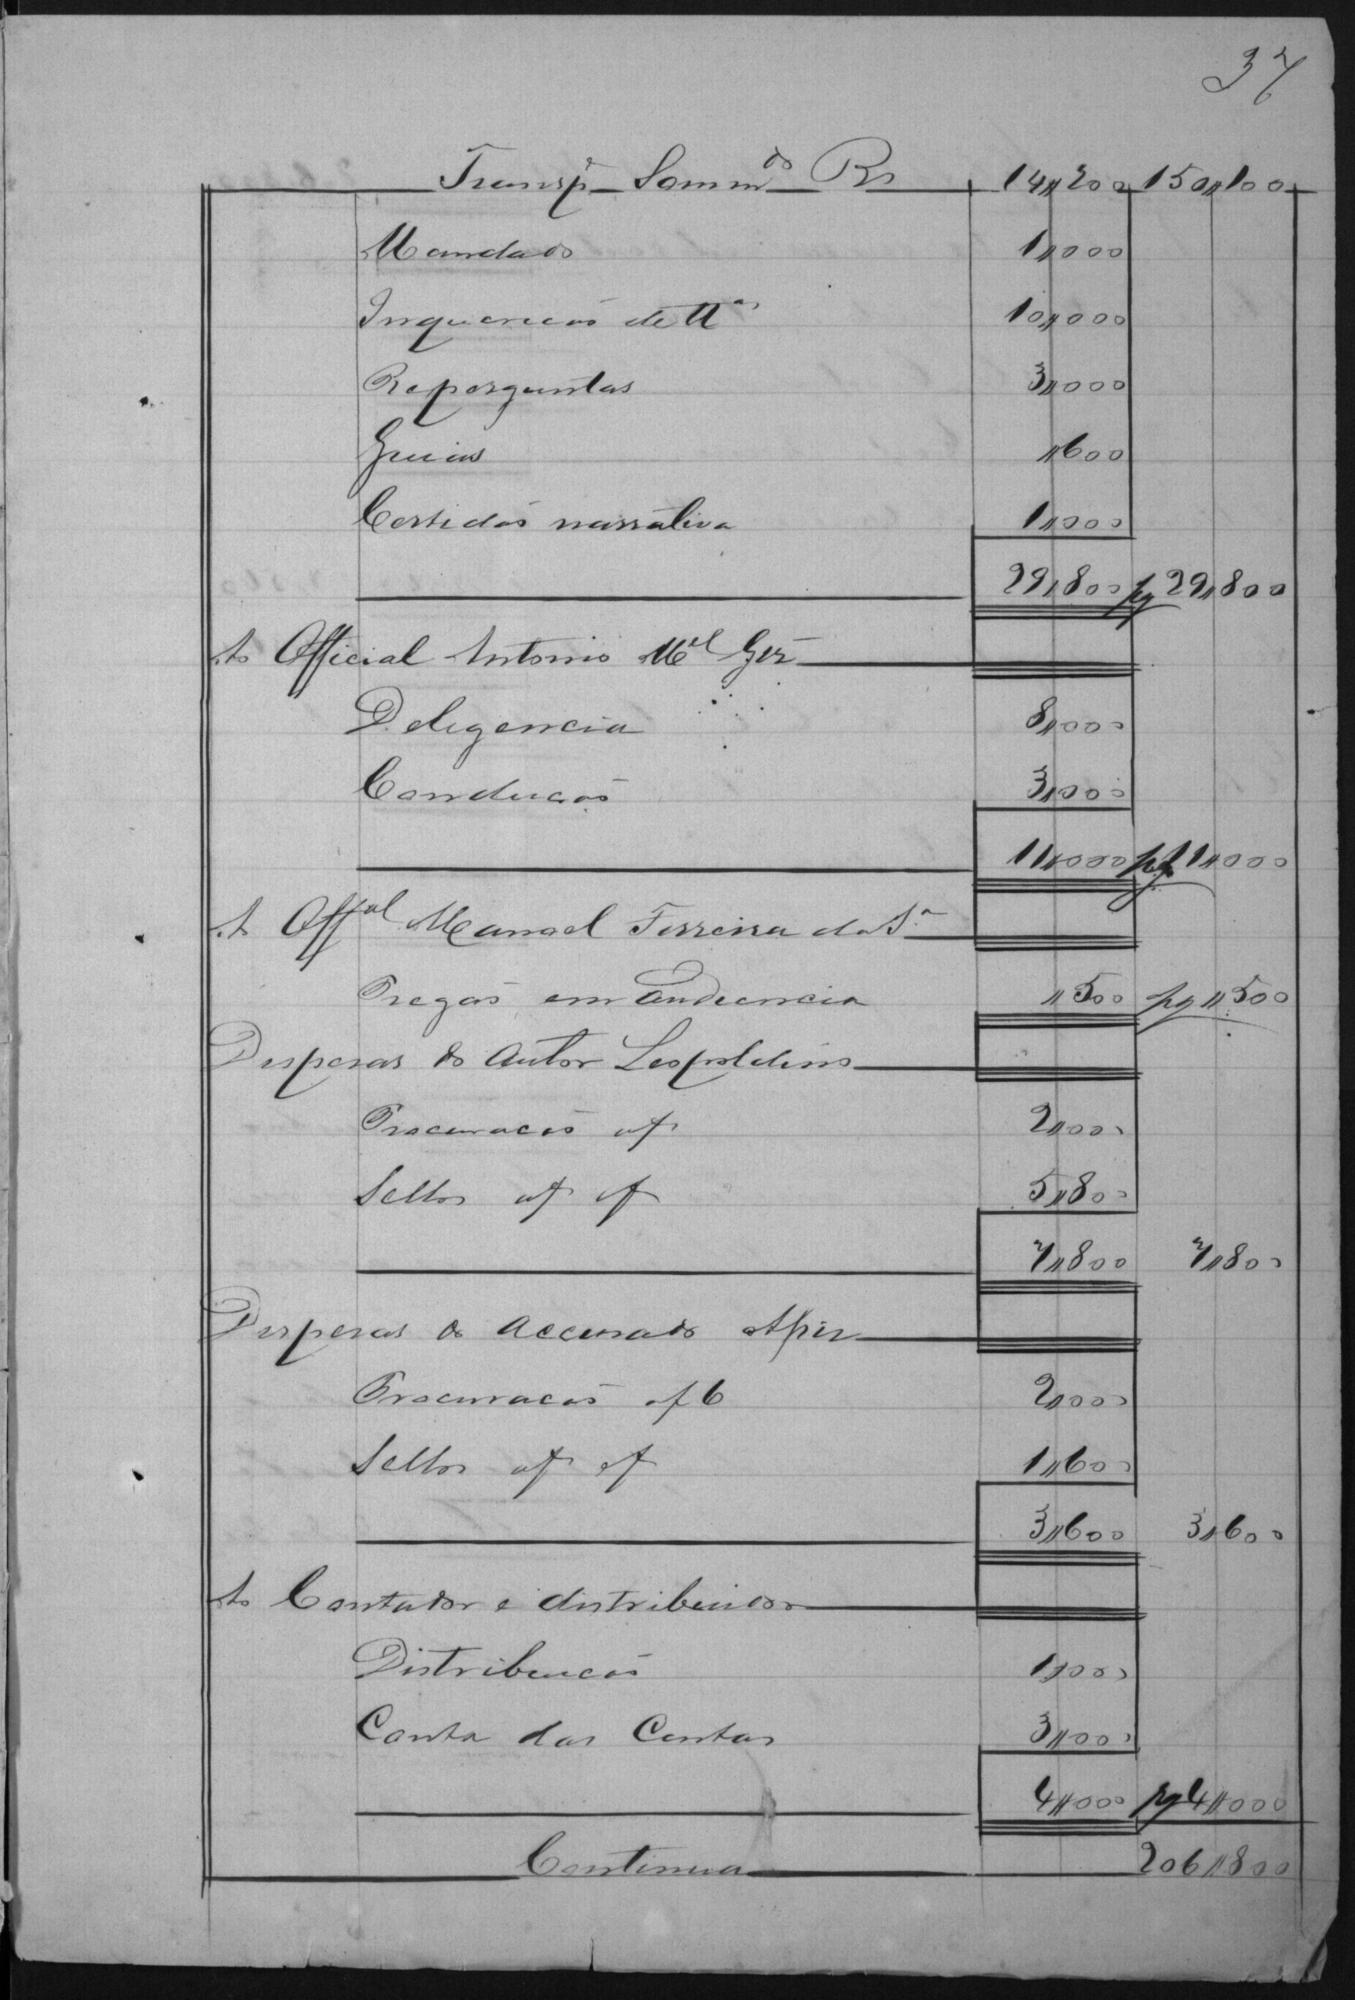 37
Transpe Sommdo Rs 14,,200 150,,100
Mandado 1,,000
Inquericão de Ttas 10,,000
Reperguntas 3,,000
Guias ,,600
Certidão narrativa 1,,000
29,,800 pg 29,,800
Ao Official Antonio Mel Gez
Deligencia 8,,000
Conducão 3,,000
11,,000 pg 11,,000
Ao Offal Manoel Ferreira da Sa
Pregão em audiencia ,,500 pg ,,500
Despesas do Autor Leopoldino
Procuracão af 2,,000
Sellos af af 5,,800
7,,800 7,,800
Despesas do Accusado
Procuracão af 6 2,,000
Sellos af af 1,,600
3,,600 3,,600
Ao Contador e distribuidor
Distribuicão 1,,000
Conta das Custas 3,,000
4,,000 pg 4,,000
Continua 206,,800